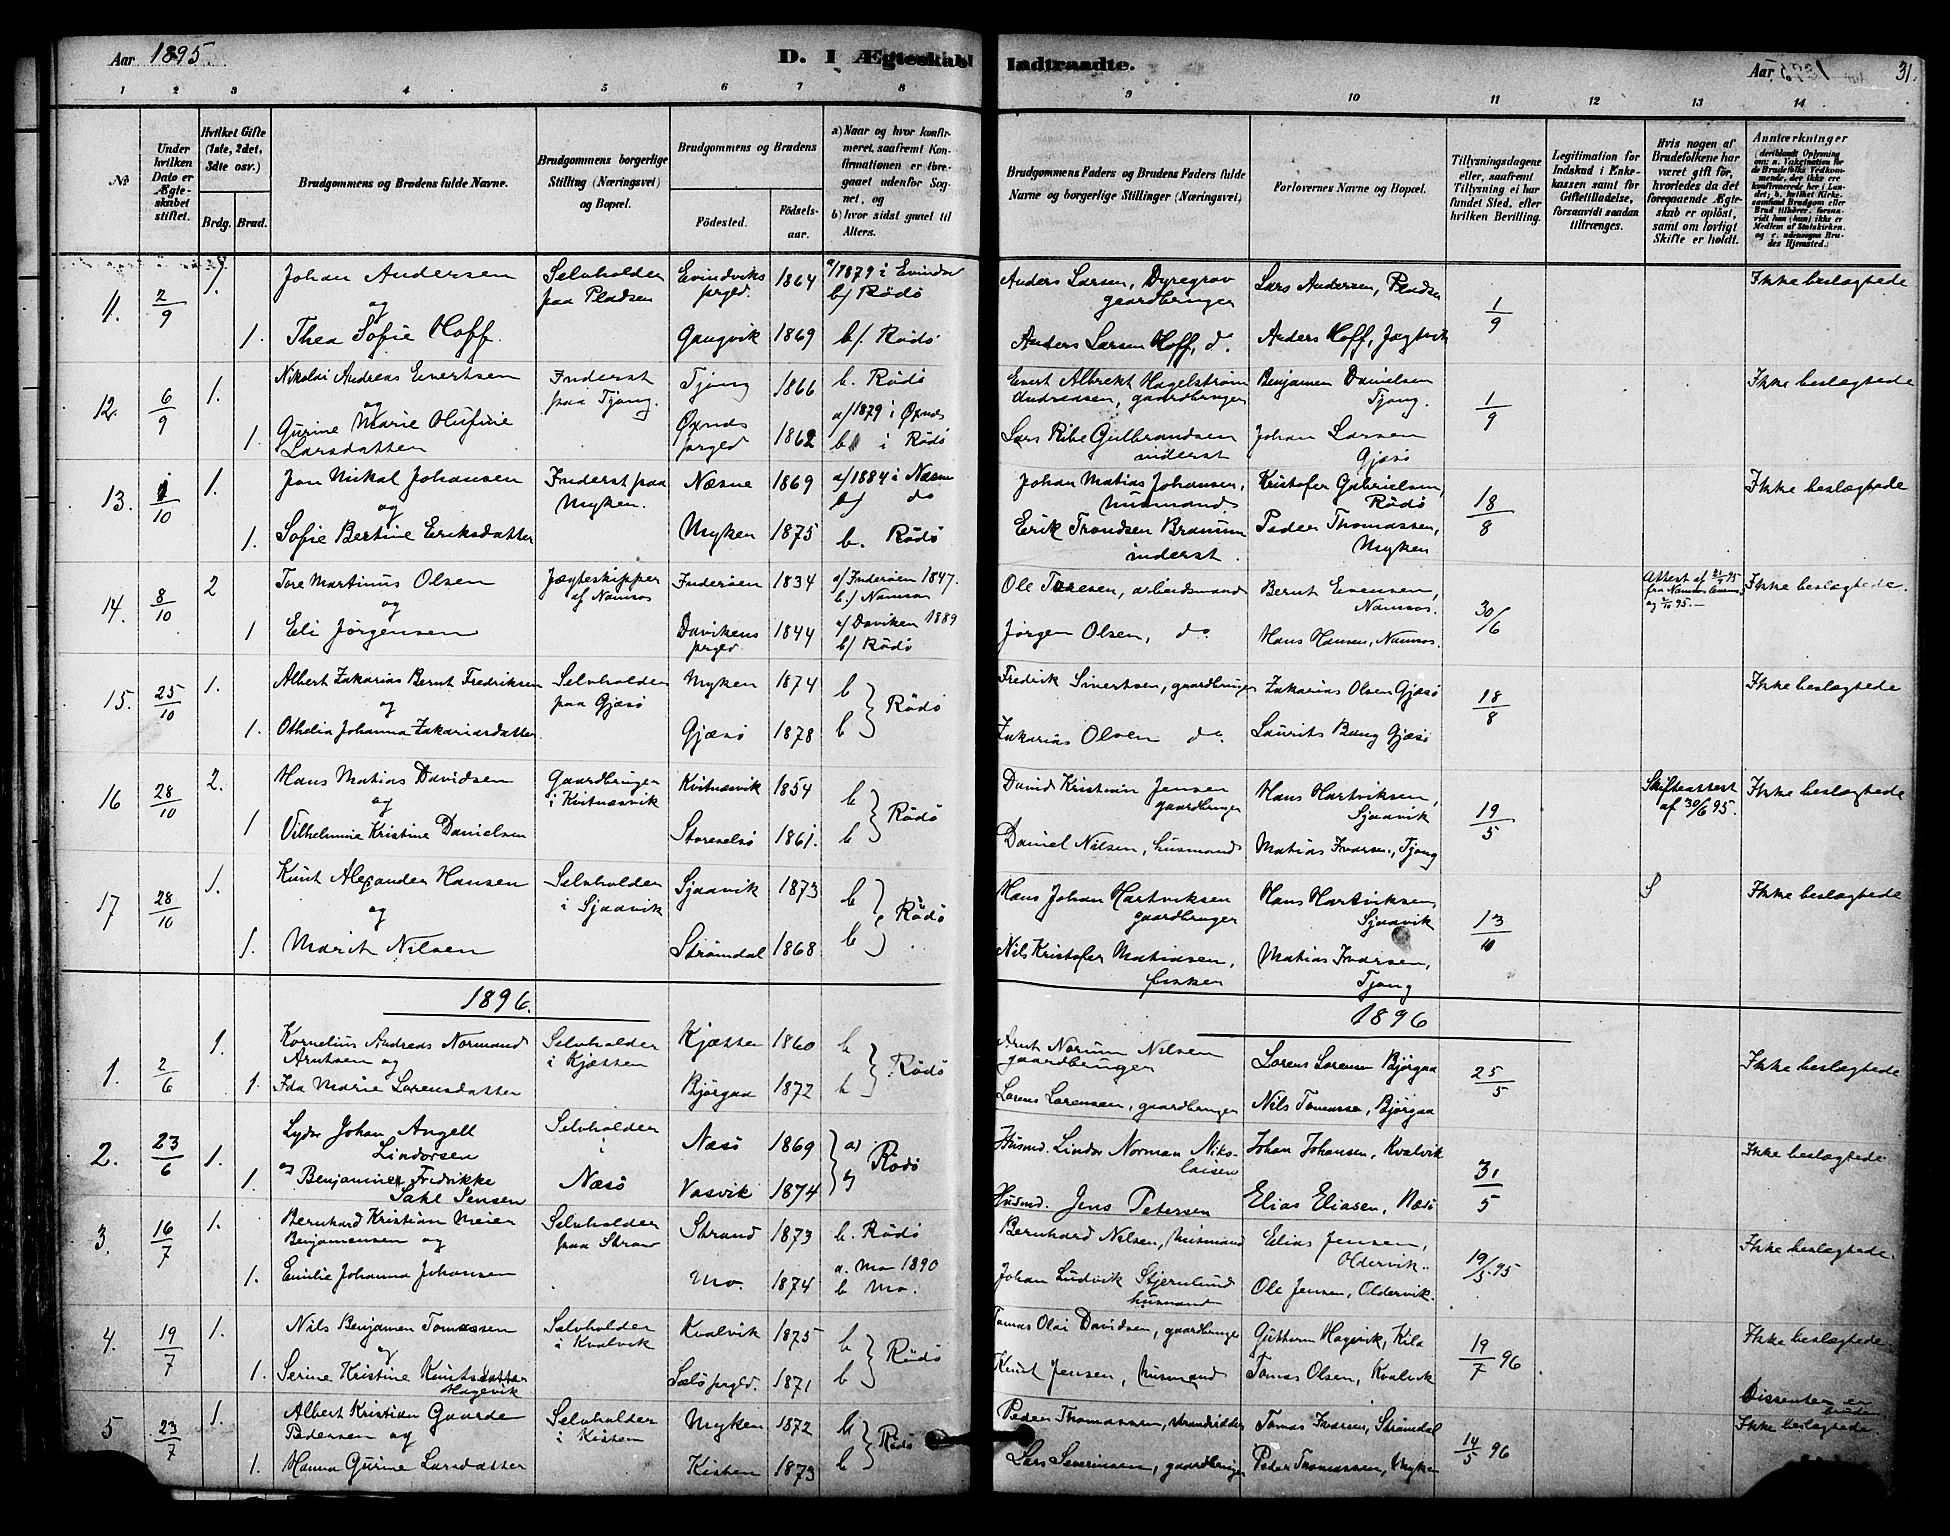 Aar 1895.
D. I Ægteskab
Indtraadte.
Aar
31.
1 2 3 4 5 6 7 8
9 10 11 12 13 14
№
Under hvilken Dato er Ægteskabet stiftet.
Hvilket Gifte (1ste, 2det, 3dte osv.)
Brdg. Brud.
Brudgommens og Brudens fulde Navne.
Brudgommens borgerlige Stilling (Næringsvei) og Bopæl.
Brudgommens og Brudens
Födested.
Födselsaar.
a) Naar og hvor konfirmeret, saafremt Konfirmationen er foregaaet udenfor Sognet, og
b) hvor sidst gaaet til Alters.
Brudgommens Faders og Brudens Faders fulde Navne og borgerlige Stillinger (Næringsvei)
Forlovernes Navne og Bopæl.
Tillysningsdagene eller, saafremt Tillysning ei har fundet Sted, efter hvilken Bevilling.
Legitimation for Indskud i Enkekassen samt for Giftetilladelse, forsaavidt saadan tiltrænges.
Hvis nogen af Brudefolkene har været gift før, hvorledes da det foregaaende Ægteskab er opløst, samt om lovligt Skifte er holdt.
Anmærkninger
11. 2/9 1. Johan Andersen Selvholder paa Pladsen Evindviks prgld. 1864 a/1879 i Evindv b/ Rödö Anders Larsen, Dyregrov gaardbruger Lars Andersen, Pladsen 1/9 Ikke beslægtede
og
1. Thea Sofie Hoff. Gangvik 1869 b/. Rödö Anders Larsen Hoff, d. Anders Hoff, Jægtvik
12. 6/9 1. Nikolai Andreas Evertsen Inderst paa Tjong. Tjong 1866 b. Rödö Evert Albrekt Hagelstrøm Andreasen, gaardbruger Benjamen Danielsen Tjong. 1/9 Ikke beslægtede
og
1 Gurine Marie Hufine Larsdatten Øxnes prgld 1862 a/1879 i Øxnes b i Rödö Lars Ribe Gulbrandsen inderst Johan Larsen Gjæsö
13. 1/10 1. Jon Mikal Johansen Inderst paa Myken. Næsne 1869 a/1884 i Næsne b/ do Johan Matias Johansen, husmand. Kristofer Gabrielsen, Rödö 18/8 Ikke beslægtede
og
1. Sofie Bertine Eriksdatter Myken 1875 b. Rödö Erik Trondsen Brannum inderst. Peder Thomassen, Myken
14. 8/10 2 Tore Martinus Olsen Jægteskipper af Namsos Inderöen 1834 a/Inderöen 1847. b.) Namsos Ole Toresen, arbeidsmand Bernt Evensen, Namsos. 30/6 Attest af 21/9 95 fra Namsos og 2/10 95. Ikke beslægtede.
og
1 Eli Jörgensen Davikens prgld. 1844 a/ Daviken 1889 b/ Rödö Jörgen Olsen, do Hans Hansen, Namsos.
15. 25/10 1. Albert Zakarias Bernt Fredriksen Selvholder paa Gjæsö Myken 1874 b Rödö Fredrik Sivertsen, gaardbruger Zakarias Olsen Gjæsö 18/8 Ikke beslægtede
og
1. Othelia Johanna Zakariasdatter Gjæsö 1878 b Zakarias Olsen do. Laurits Bang Gjæsö
16 28/10 2. Hans Matias Davidsen Gaardbruger i Kvitnæsvik Kvitnæsvik 1854 b Rödö David Kristian Jensen gaardbruger Hans Hartviksen, Sjaavik 19/5 Skifteattest af 30/6 95. Ikke beslægtede
og
1 Vilhelmine Kristine Danielsen Storeselsö 1861. b Daniel Nilsen, husmand Matias Ivarsen, Tjong
17 28/10 1. Knut Alexander Hansen Selvholder i Sjaavik Sjaavik 1873 b Rödö Hans Johan Hartviksen gaardbruger Hans Hartviksen, Sjaavik 13/10 Ikke beslægtede
og
1. Marit Nilsen Strömdal 1868 b Nils Kristofer Matiasen, fisker Matias Ivarsen, Tjong
1896.
1896
1. 2/6 1. Kornelius Andreas Normand Arntsen og Selvholder i Kjætten Kjætten 1860 b Rödö Arnt Norum Nilsen gaardbruger Lorens Lorensen Bjørgaa 25/5 Ikke beslægtede
1. Ida Marie Lorensdatter Bjørgaa 1872 b Lorens Lorensen, gaardbruger Nils Tomassen, Bjørgaa
2. 23/6 1. Lyder Johan Angell Lindorsen Selvholder i Næsö Næsö 1869 a) Rödö Husmd. Lindor Norman Nikolaisen Johan Johansen, Kvalvik 31/5 Ikke beslægtede
1. og Benjamine Fredrikke Dahl Jensen Vasvik 1874 Husmd. Jens Petersen Elias Eliasen, Næsö
3. 16/7 1. Bernhard Kristian Meier Benjamensen og Selvholder paa Strand Strand 1873 b. Rödö Bernhard Nilsen, husmand Elias Jensen, Oldervik. 19/5 95 Ikke beslægtede.
1. Emilie Johanna Johansen Mo. 1874 a. Mo 1890 b Mo. Johan Ludvik Stjernlund husmand Ole Jensen, Oldervik.
4. 19/7 1. Nils Benjamen Tomassen Selvholder i Kvalvik Kvalvik 1875 b Rödö Tomas Olai Davidsen, gaardbruger Guttorm Hagevik, Kila 19/7 96 Ikke beslægtede.
og
1. Serine Kristine Knutsdatter Hagevik Selö prgld. 1871 b Knut Jensen, husmand Tomas Olsen, Kvalvik
5 23/7 1. Albert Kristian Gaarde Pedersen og Selvholder i Kisten Myken 1872 b Rödö Peder Thomassen, strandsidder Tomas Ivarsen, Strömdal 14/5 96 Dissenter er bruden Ikke beslægtede.
1. Hanna Gurine Larsdatter Kisten 1873 b Lars Severinsen, gaardbruger Peder Thomassen, Myken